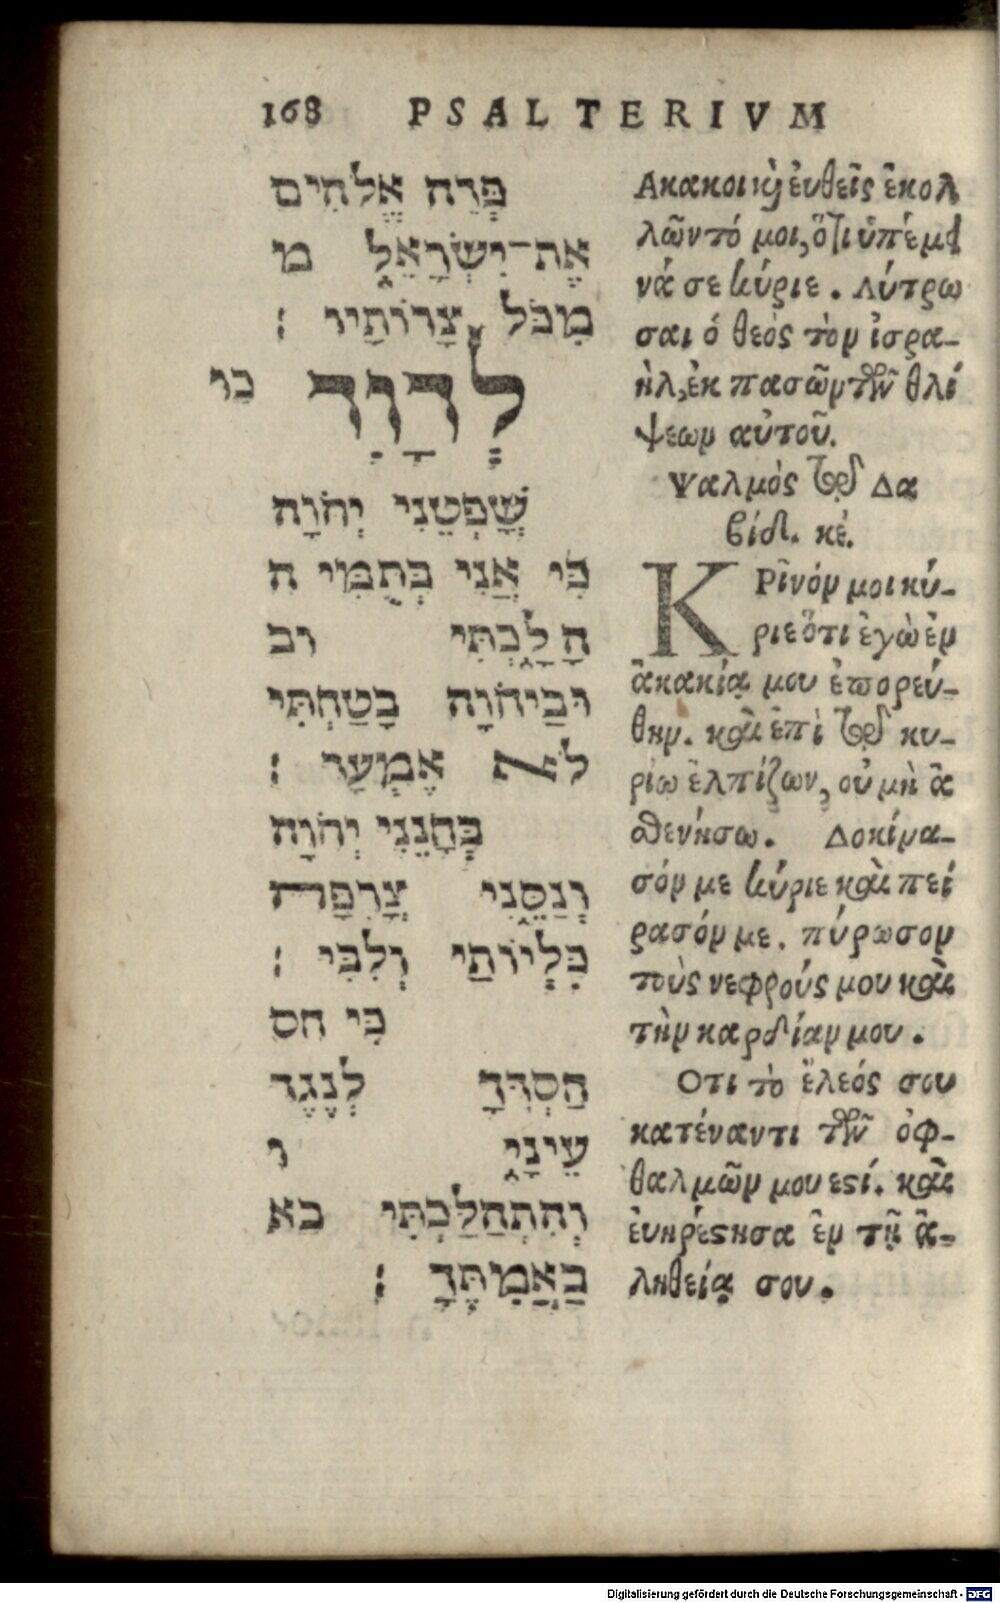 168 PSALTERIVM
פְּדֵה אֱלֹהִים
אֶת־יִשְׂרָאֵל מ
מִכֹּל צָרוֹתָיו :
לְדָוִד כו
שָׁפְטֵנִי יְהֹוָה
כִּי אֲנִי בְּתֻמִּי ה
הָלַכְתִּי וב
וּבַיהֹוָה בָּטַחְתִּי
לֹא אֶמְעָד :
בְּחָנֵנִי יְהֹוָה
וְנַסֵּנִי צָרְפָה
כִלְיוֹתַי וְלִבִּי :
כִּי חס
חַסְדְּךָ לְנֶגֶד
עֵינָי ו
וְהִתְהַלַּכְתִּי בא
בַּאֲמִתֶּךָ :
Ακακοι καὶ ἐυθεῖς ἐκολ
λῶντό μοι, ὅτι ὑπέμει
νά σε κύριε . Λύτρω
σαι ὁ θεὸς τὸν ἰσρα-
ὴλ, ἐκ πασῶν τῶν θλί
ψεων αὐτοῦ.
Ψαλμὸς τῷ Δα
βίδ. κέ.
ΚΡῖνόν μοι κύ-
ριε ὅτι ἐγὼ ἐν
ἀκακίᾳ μου ἐπορεύ-
θην. καὶ ἐπὶ τῷ κυ-
ρίῳ ἐλπίζων, οὐ μὴ ἀ
σθενήσω. Δοκίμα-
σόν με κύριε καὶ πεί
ρασόν με. πύρωσον
τοὺς νεφρούς μου καὶ
τὴν καρδίαν μου .
Οτι τὸ ἔλεός σου
κατέναντι τῶν ὀφ-
θαλμῶν μου εστί. καὶ
ἐυηρέστησα ἐν τῇ ἀ-
ληθείᾳ σου.
Digitalisierung gefördert durch die Deutsche Forschungsgemeinschaft - DFG